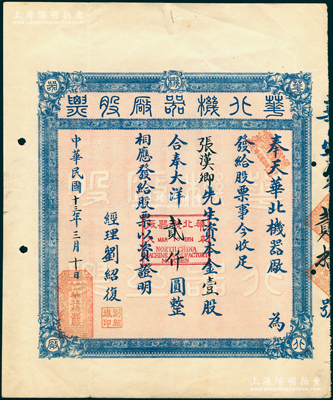 上海陽明拍賣
華北機器廠股票
奉天華北機器廠 為
發給股票事今收足
張漢卿先生資本金壹股
合奉大洋貳仟圓整
相應發給股票以資證明
經理劉紹復
中華民國十三年三月十日
華北機器廠
MAR 1924
NORTH CHINA
MACHINE FACTORY
MUKDEN
華
北
機
器
廠